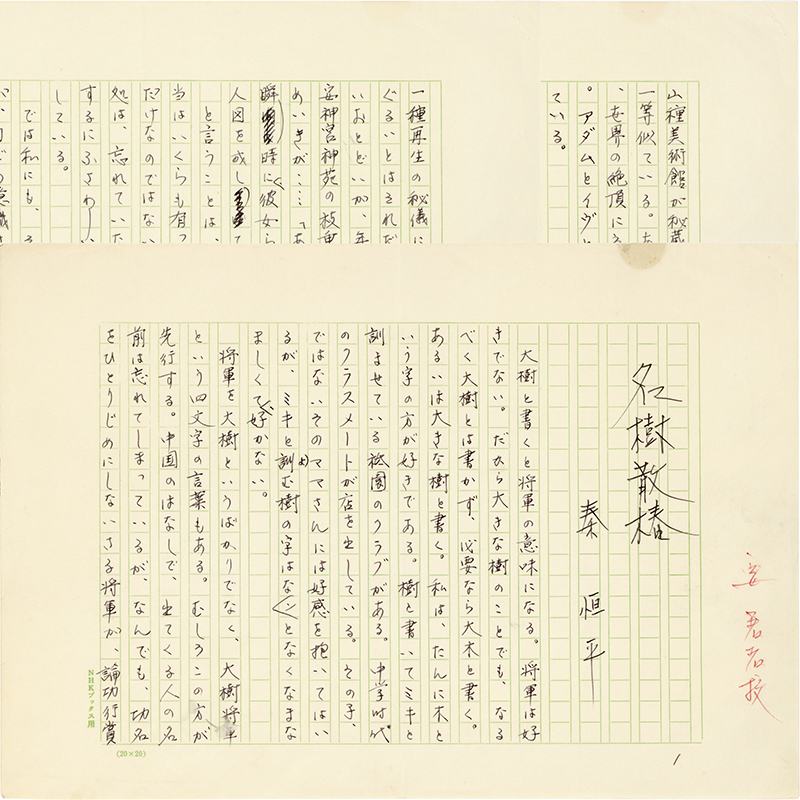 山種美術館が秘蔵
一等似ている。
、世界の絶頂に
。アダムとイヴと
ている。
一種再生の秘儀に
ぐるいとはされだ
いおとどいか、年
安神宮神苑の枝垂
めいきが……「あ
瞬時に彼女ら
人図を成して
と言うことは、
当はいくらも有っ
だけなのではない
処は、忘れていた
するにふさわしい
している。
では私にも、
名樹散椿
秦恒平
大樹と書くと将軍の意味になる。将軍は好
きでない。だから大きな樹のことでも、なる
べく大樹とは書かず、必要なら大木と書く。
あるいは大きな樹と書く。私は、たんに木と
いう字の方が好きである。樹と書いてミキと
訓ませている祇園のクラブがある。中学時代
のクラスメートが店を出している。その子、
ではないそのママさんには好感を抱いてはい
るが、ミキと訓む樹の字はなんとなくなまな
ましくて好かない。
将軍を大樹というばかりでなく、大樹将軍
という四文字の言葉もある。むしろこの方が
先行する。中国のはなしで、出てくる人の名
前は忘れてしまっているが、なんでも、功名
をひとりじめにしないさる将軍が、論功行賞
要著者校
NHKブックス用
(20×20)
1